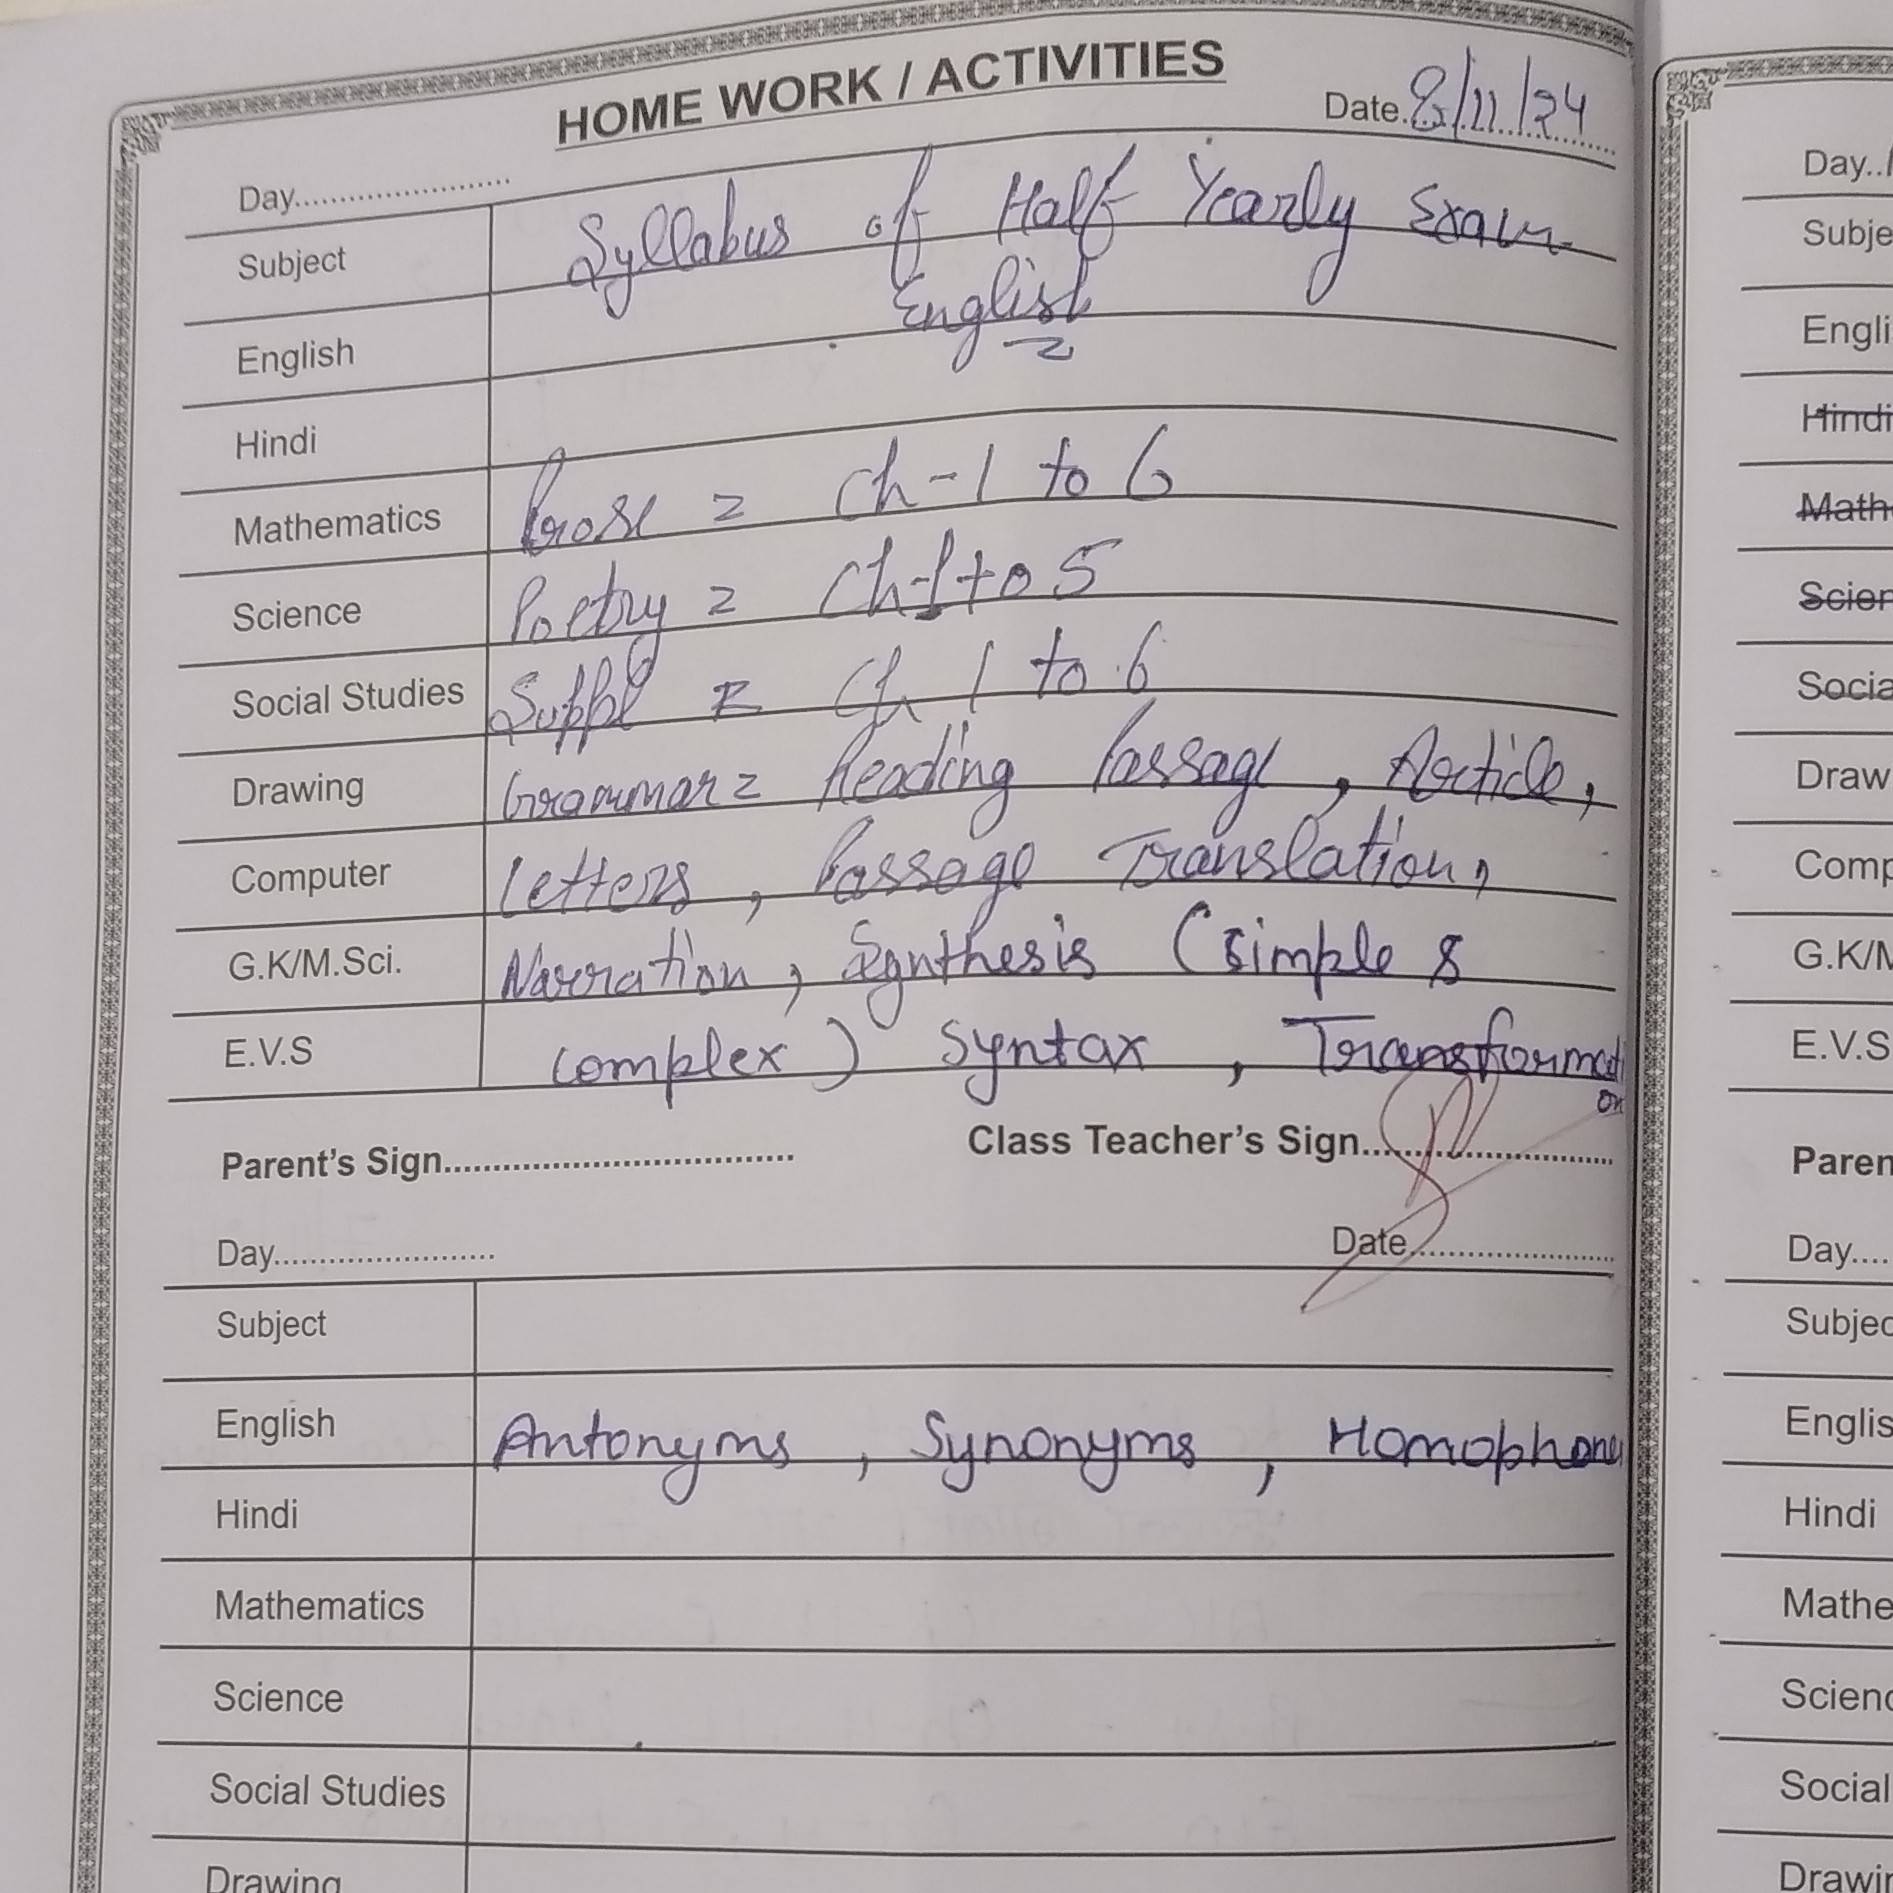 HOME WORK / ACTIVITIES
Day........................ Date. 8/11/24
Subject Syllabus of Half Yearly Exam
English English
Hindi
Mathematics Prose = Ch-1 to 6
Science Poetry = Ch-1 to 5
Social Studies Suppl = Ch 1 to 6
Drawing Grammar = Reading Passage, Article,
Computer Letters, Passage Translation,
G.K/M.Sci. Narration, Synthesis (simple &
E.V.S complex) Syntax, Transformation
Parent's Sign.................................. Class Teacher's Sign............................
Day........................ Date........................
Subject
English Antonyms, Synonyms, Homophones
Hindi
Mathematics
Science
Social Studies
Drawing
Day..
Subje
Engli
Hindi
Math
Scien
Socia
Draw
Comp
G.K/M
E.V.S
Paren
Day....
Subjec
Englis
Hindi
Mathe
Scienc
Social
Drawin